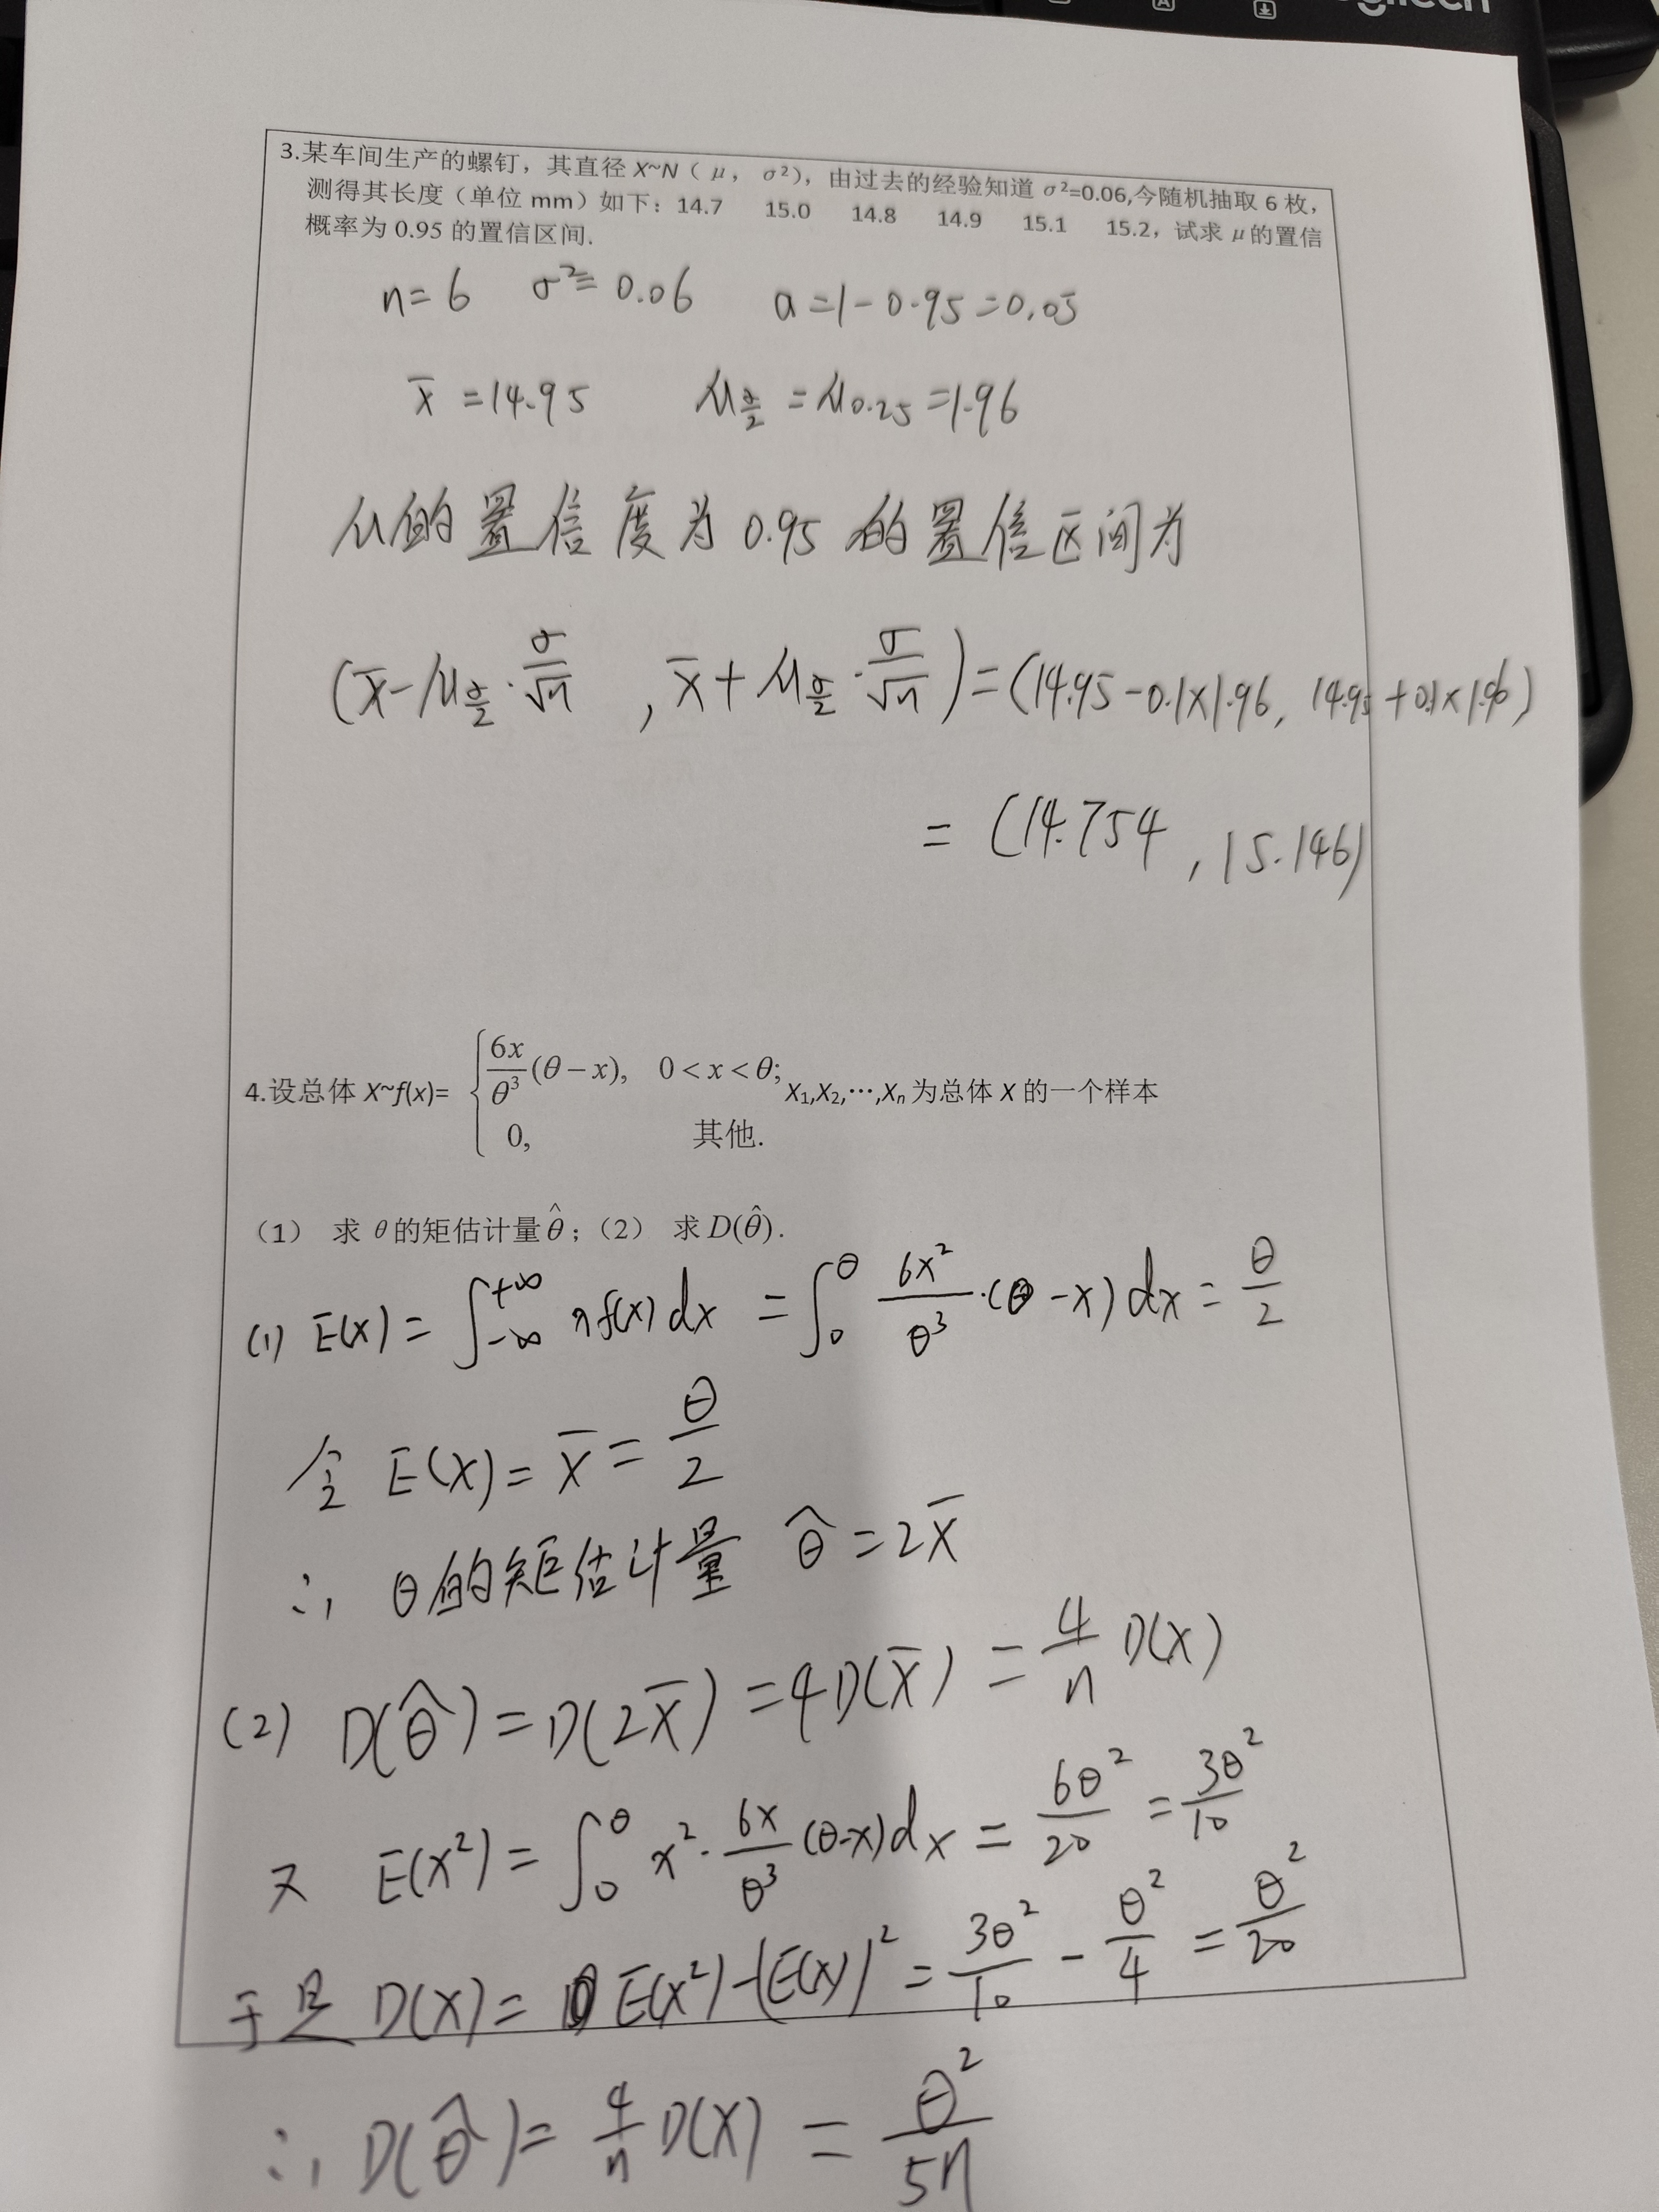 3.某车间生产的螺钉，其直径 X~N（ μ， σ²），由过去的经验知道 σ²=0.06,今随机抽取 6 枚，
测得其长度（单位 mm）如下：14.7 15.0 14.8 14.9 15.1 15.2，试求 μ 的置信
概率为 0.95 的置信区间.
n=6 σ²=0.06 a=1-0.95=0.05
x̄=14.95 μ_{α/2}=μ_{0.25}=1.96
μ的置信度为0.95的置信区间为
(x̄-μ_{α/2}·σ/√n , x̄+μ_{α/2}·σ/√n)=(14.95-0.1×1.96, 14.95+0.1×1.96)
=(14.754, 15.146)
4.设总体 X~f(x)= { 6x/θ³ (θ-x), 0<x<θ; X₁,X₂,…,Xₙ 为总体 X 的一个样本
0, 其他.
（1） 求 θ 的矩估计量 θ̂；（2） 求 D(θ̂).
(1) E(X)=∫_{-∞}^{+∞} xf(x)dx=∫₀^θ 6x²/θ³·(θ-x)dx=θ/2
令 E(X)=X̄=θ/2
∴ θ的矩估计量 θ̂=2X̄
(2) D(θ̂)=D(2X̄)=4D(X̄)=4/n D(X)
又 E(X²)=∫₀^θ x²·6x/θ³(θ-x)dx=6θ²/20=3θ²/10
于是 D(X)=E(X²)-(E(X))²=3θ²/10-θ²/4=θ²/20
∴ D(θ̂)=4/n D(X)=θ²/5n